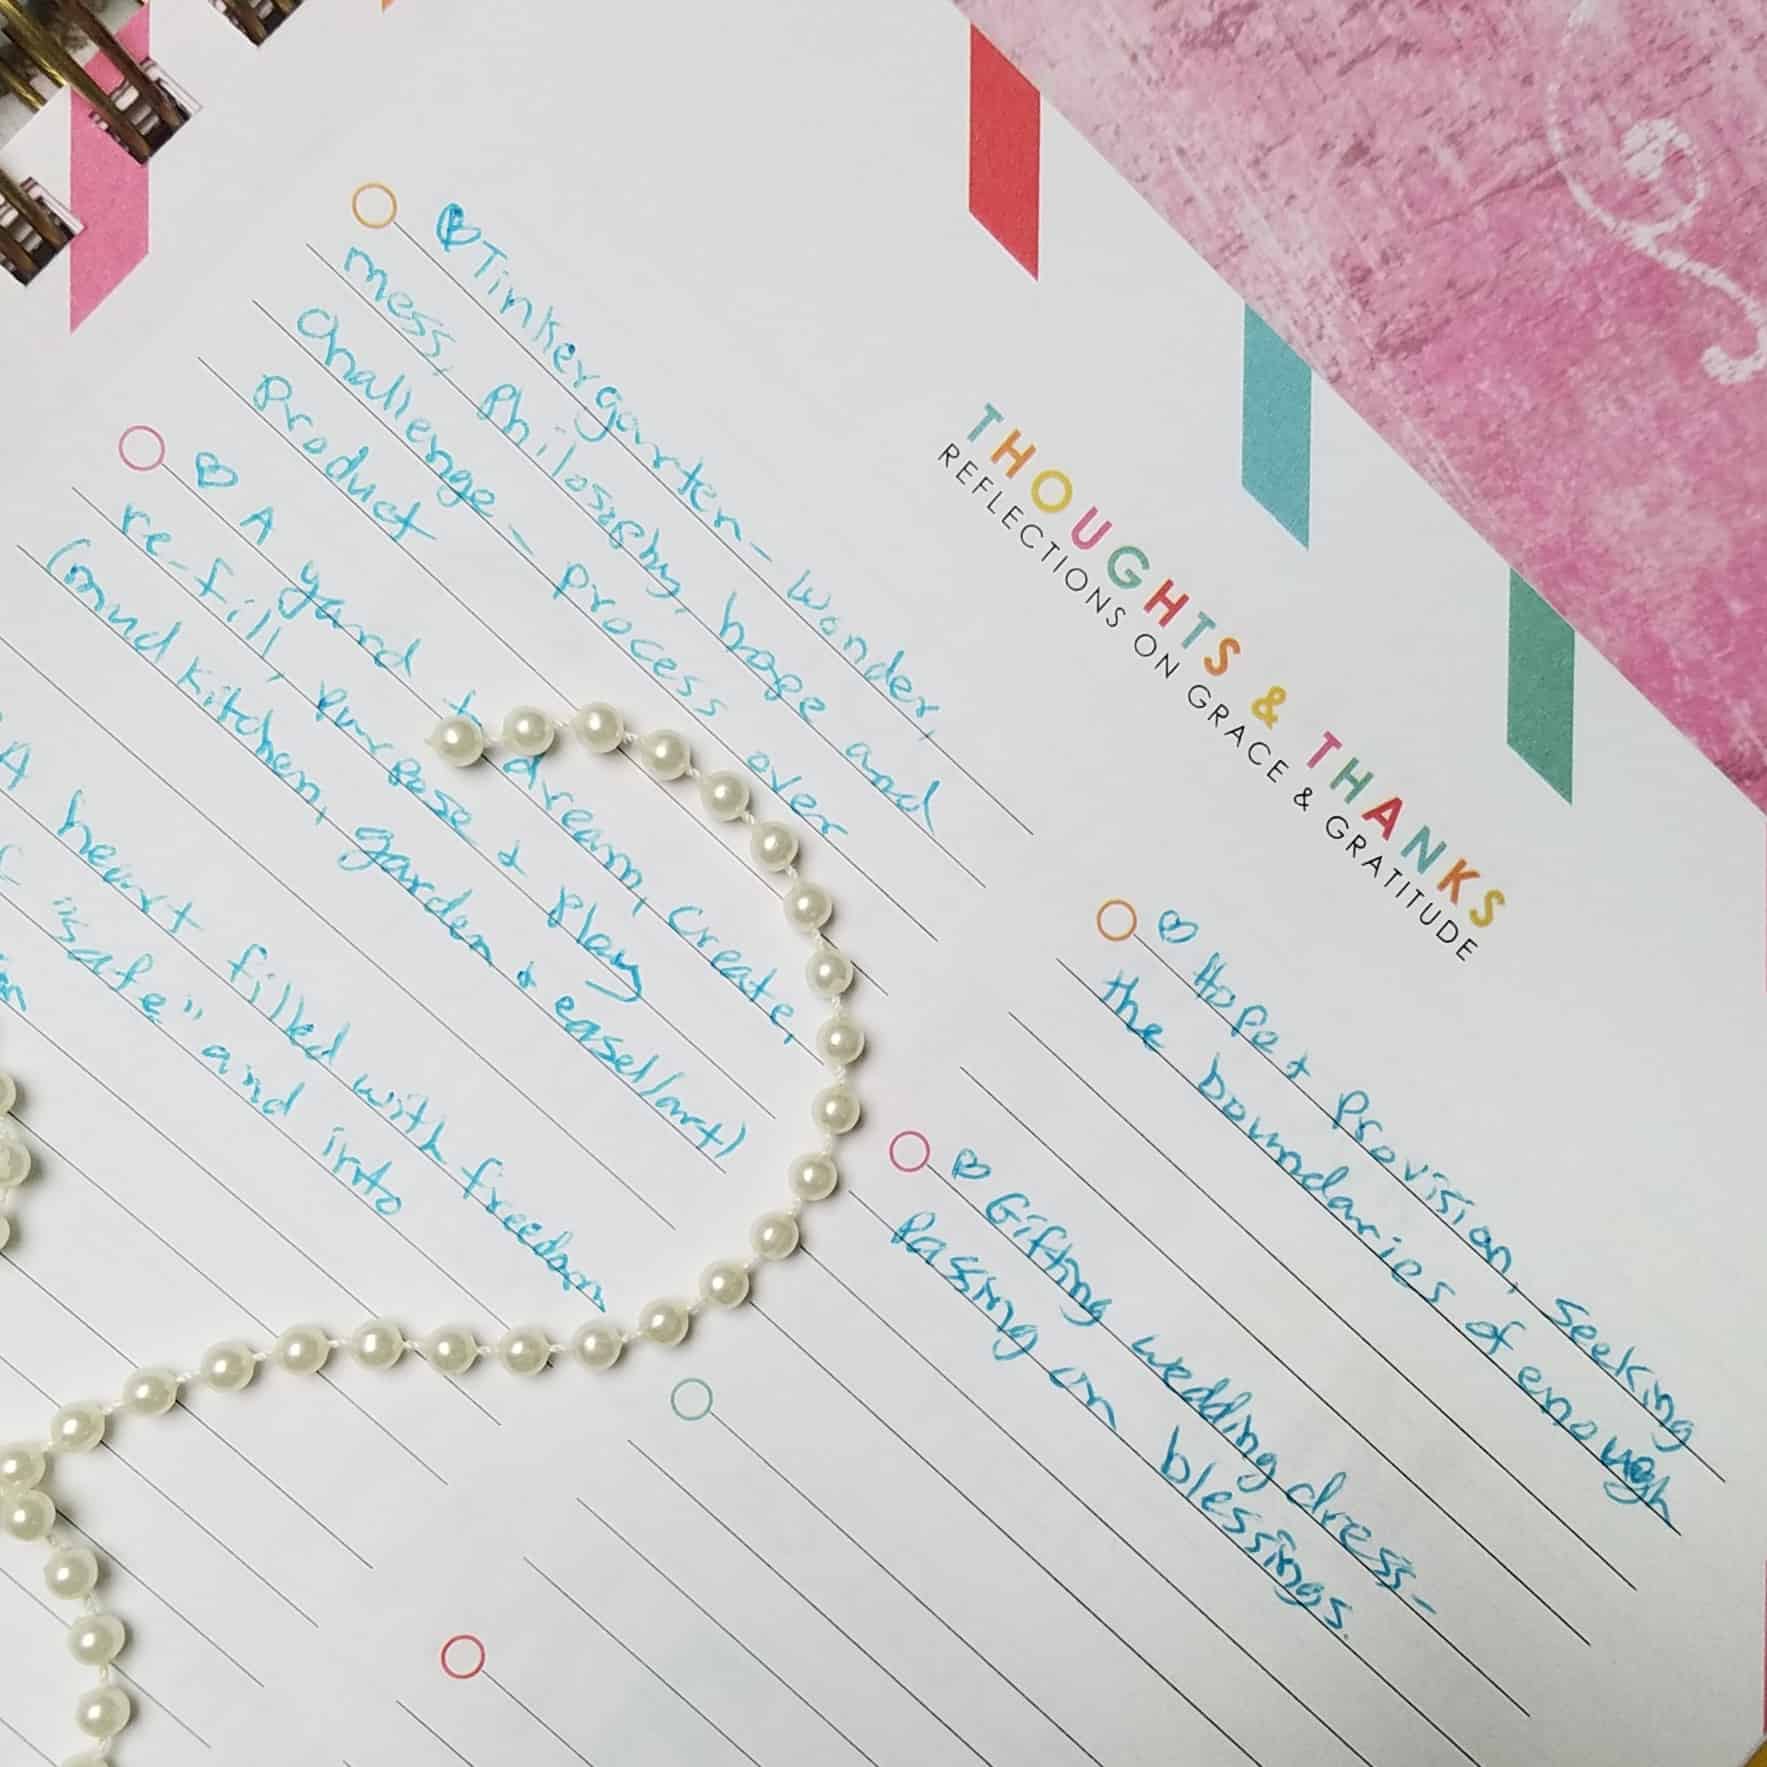 THOUGHTS & THANKS
REFLECTIONS ON GRACE & GRATITUDE
Tinkergarten - wonder,
mess, Philosophy, hope and
Challenge - process over
Product
A yard to dream, create,
re-fill, purpose + play
(mud kitchen, garden + easel/art)
A heart filled with freedom
"safe" and into
Hope + Provision, seeking
the boundaries of enough
Gifting wedding dress -
Passing on blessings.